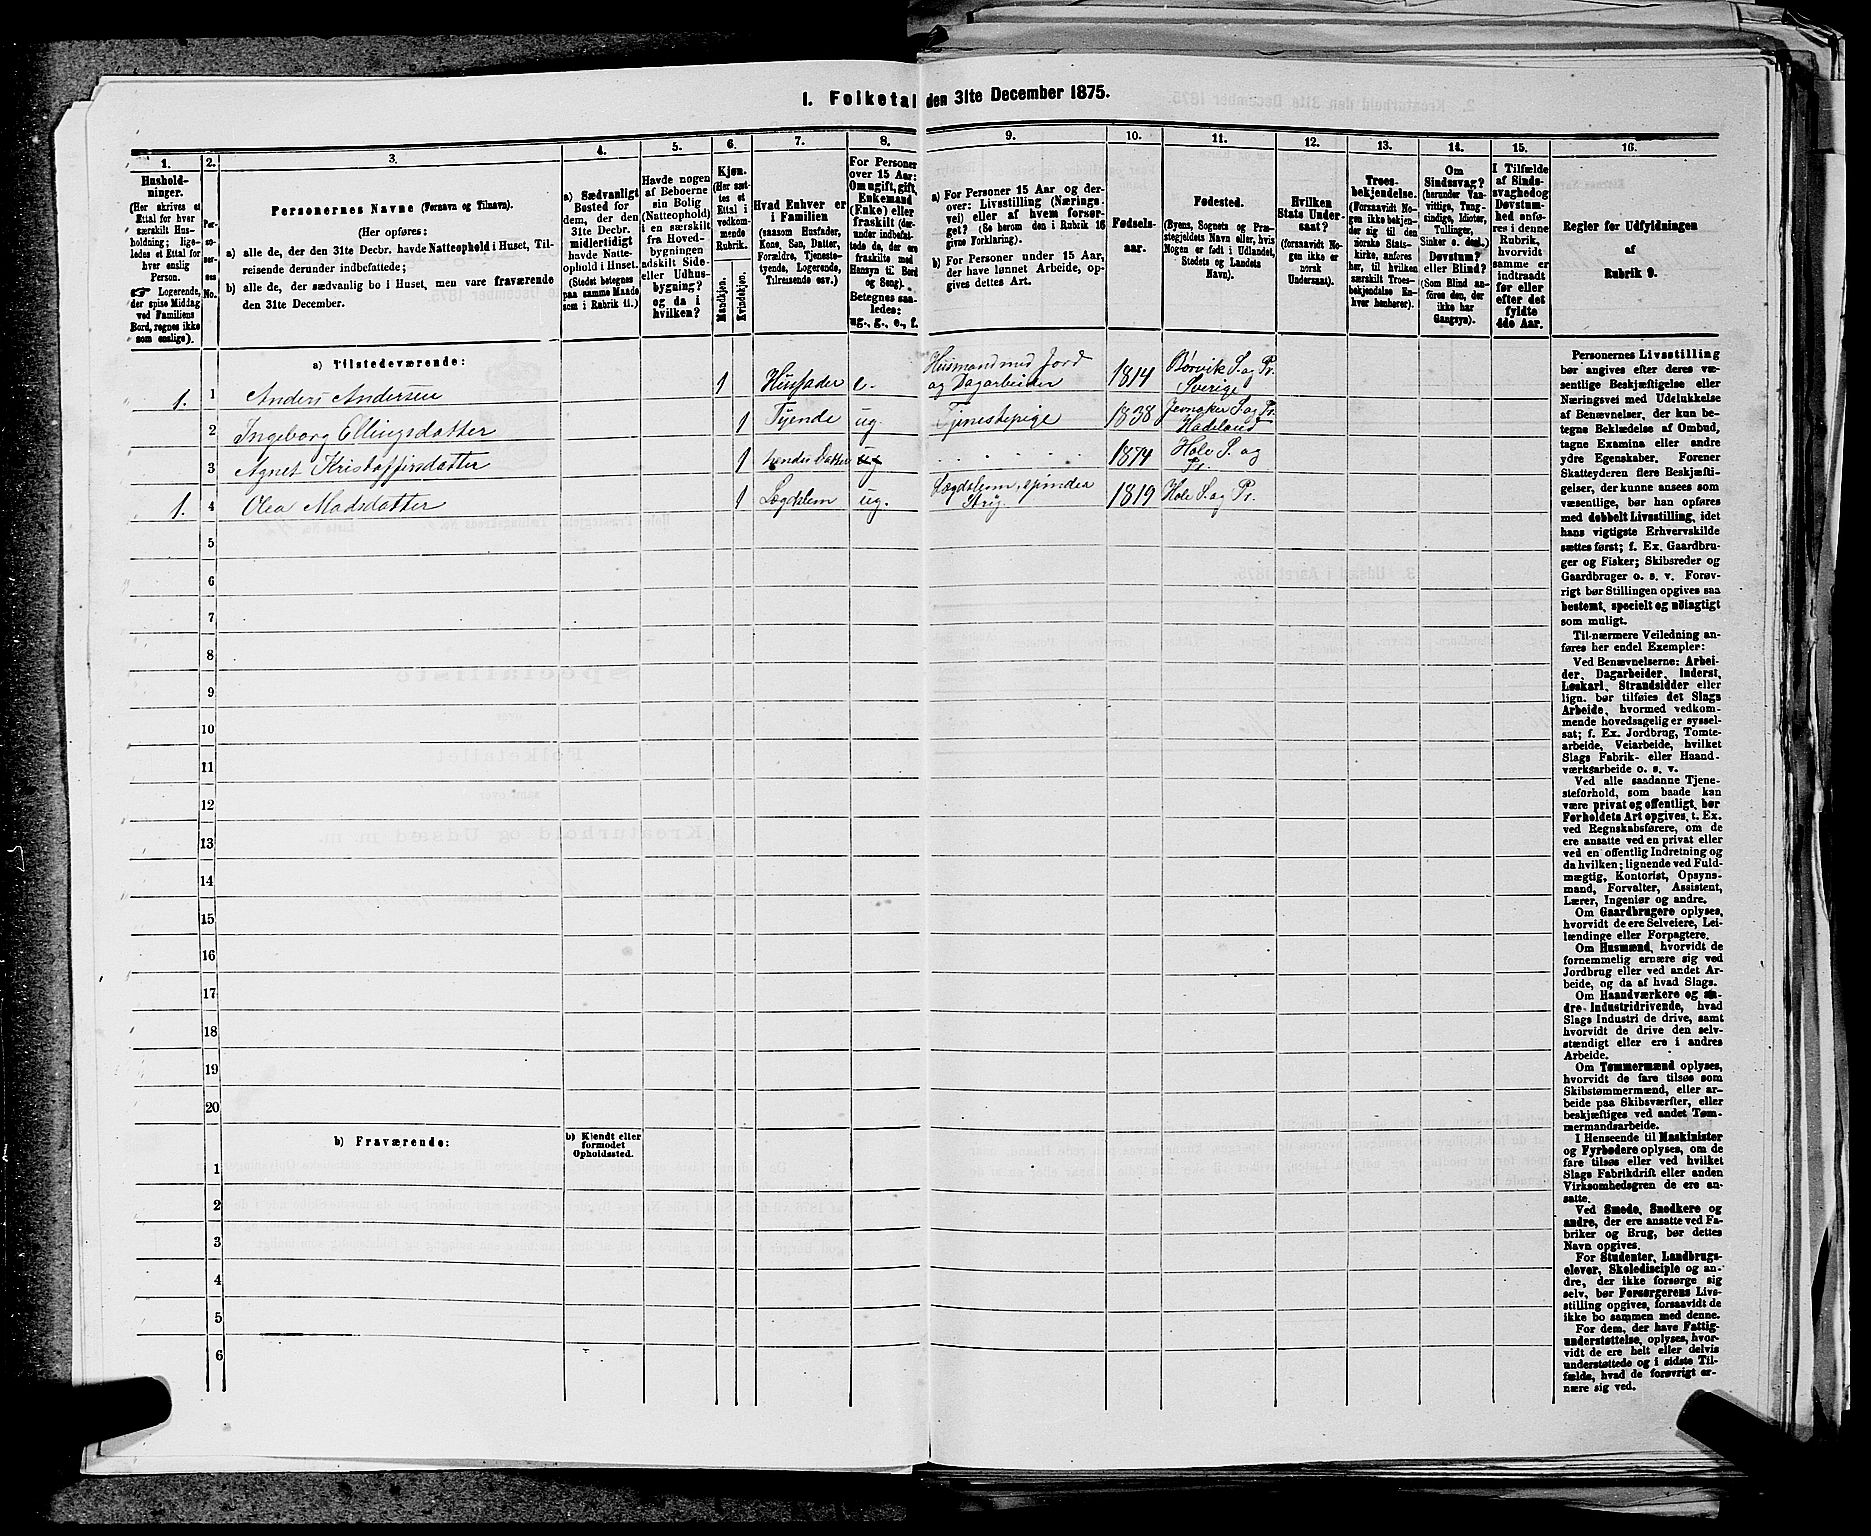 I. Folketal den 31te December 1875.
1.
2.
3.
4.
5.
6.
7.
8.
9.
10.
11.
12.
13.
14.
15.
16.
Hushold-
ninger.
(Her skrives et
Ettal for hver
særskilt Hus-
holdning; lige-
ledes et Ettal for
hver enslig
Person.
☞ Logerende,
der spise Middag
ved Familiens
Bord, regnes ikke
som enslige).
Per-
so-
ner-
nes
No.
Personernes Navne (Fornavn og Tilnavn).
(Her opføres:
a) alle de, der den 31te Decbr. havde Natteophold i Huset, Til-
reisende derunder indbefattede;
b) alle de, der sædvanlig bo i Huset, men vare fraværende
den 31te December.
a) Sædvanligt
Bosted for
dem, der den
31te Decbr.
midlertidigt
havde Natte-
ophold i Huset.
(Stedet betegnes
paa samme Maade
som i Rubrik 11.)
Havde nogen
af Beboerne
sin Bolig
(Natteophold)
i en særskilt
fra Hoved-
bygningen
adskilt Side-
eller Udhus-
bygning?
og da i
hvilken?
Kjøn.
(Her sæt-
tes et
Ettal i
vedkom-
mende
Rubrik.
Mandkjøn.
Kvindekjøn.
Hvad Enhver er
i Familien
(saasom Husfader,
Kone, Søn, Datter,
Forældre, Tjeneste-
tyende, Logerende,
Tilreisende osv.)
For Personer
over 15 Aar:
Om ugift, gift,
Enkemand
(Enke) eller
fraskilt (der-
under indbefat-
tede de, der ere
fraskilte med
Hensyn til Bord
og Seng).
Betegnes saa-
ledes:
ug., g., e., f.
a) For Personer 15 Aar og der-
over: Livsstilling (Nærings-
vei) eller af hvem forsør-
get? (Se herom den i Rubrik 16
givne Forklaring).
b) For Personer under 15 Aar,
der have lønnet Arbeide, op-
gives dettes Art.
Fødsels-
aar.
Fødested.
(Byens, Sognets og Præ-
stegjeldets Navn eller, hvis
Nogen er født i Udlandet,
Stedets og Landets
Navn).
Hvilken
Stats Under-
saat?
(forsaavidt No-
gen ikke er
norsk
Undersaat).
Troes-
bekjendelse.
(Forsaavidt No-
gen ikke bekjen-
der sig til den
norske Stats-
kirke, anføres
her, til hvilken
særskilt Troes-
bekjendelse En-
hver henhører).
Om
Sindssvag?
(herunder Van-
vittige, Tung-
sindige, Idioter,
Tullinger,
Sinker o. desl.)
Døvstum?
eller Blind?
(Som Blind an-
føres den, der
ikke har
Gangsyn).
I Tilfælde
af Sinds-
svaghed og
Døvstum-
hed anfø-
res i denne
Rubrik,
hvorvidt
samme er
indtraadt
før eller
efter det
fyldte
4de Aar.
Regler for Udfyldningen
af
Rubrik 9.
a) Tilstedeværende:
1. 1 Anders Andersen 1 Husfader e. Husmand med Jord
og Dagarbeider 1814 S. og Pr.
Sverige
2 Ingeborg Ellingsdatter 1 Tyende ug. Tjenestepige 1838 Jevnaker S. og Pr.
Hadeland
3 Agnet Kristoffersdatter 1 hendes Datter ug 1874 Hole S. og
Pr.
1. 4 Olea Madsdatter 1 Lægdslem ug. Lægdslem, spinder
Strie. 1819 Hole S. og Pr.
5
6
7
8
9
10
11
12
13
14
15
16
17
18
19
20
b) Fraværende:
b) Kjendt eller
formodet
Opholdssted.
1
2
3
4
5
6
Personernes Livsstilling
bør angives efter deres væ-
sentlige Beskjæftigelse eller
Næringsvei med Udelukkelse
af Benævnelser, der kun be-
tegne Beklædelse af Ombud,
tagne Examina eller andre
ydre Egenskaber. Forener
Skatteyderen flere Beskjæfti-
gelser, der kunne ansees som
væsentlige, bør han opføres
med dobbelt Livsstilling, idet
hans vigtigste Erhvervskilde
sættes først; f. Ex. Gaardbru-
ger og Fisker; Skibsreder og
Gaardbruger o. s. v. Forøv-
rigt bør Stillingen opgives saa
bestemt, specielt og nøiagtigt
som muligt.
Til nærmere Veiledning an-
føres her endel Exempler:
Ved Benævnelserne: Arbei-
der, Dagarbeider, Inderst,
Løskarl, Strandsidder eller
lign. bør tilføies det Slags
Arbeide, hvormed vedkom-
mende hovedsagelig er syssel-
sat; f. Ex. Jordbrug, Tomte-
arbeide, Veiarbeide, hvilket
Slags Fabrik- eller Haand-
værksarbeide o. s. v.
Ved alle saadanne Tjene-
steforhold, som baade kan
være privat og offentligt, bør
Forholdets Art opgives, t. Ex.
ved Regnskabsførere, om de
ere ansatte ved en privat eller
ved en offentlig Indretning og
da hvilken; lignende ved Fuld-
mægtig, Kontorist, Opsyns-
mand, Forvalter, Assistent,
Lærer, Ingeniør og andre.
Om Gaardbrugere oplyses,
hvorvidt de ere Selveiere, Lei-
lændinge eller Forpagtere.
Om Husmænd, hvorvidt de
fornemmelig ernære sig ved
Jordbrug eller ved andet Ar-
beide, og da af hvad Slags.
Om Haandværkere og an-
dre Industridrivende, hvad
Slags Industri de drive, samt
hvorvidt de drive den selv-
stændigt eller ere i andres
Arbeide.
Om Tømmermænd oplyses,
hvorvidt de fare tilsøs som
Skibstømmermænd, eller ar-
beide paa Skibsværfter, eller
beskjæftiges ved andet Tøm-
mermandsarbeide.
I Henseende til Maskinister
og Fyrbødere oplyses, om de
fare tilsøs eller ved hvilket
Slags Fabrikdrift eller anden
Virksomhedsgren de ere an-
satte.
Ved Smede, Snedkere og
andre, der ere ansatte ved Fa-
briker og Brug, bør dettes
Navn opgives.
For Studenter, Landbrugs-
elever, Skoledisciple og an-
dre, der ikke forsørge sig
selv, bør Forsørgerens Livs-
stilling opgives, forsaavidt de
ikke bo sammen med denne.
For dem, der have Fattig-
understøttelse, oplyses, hvor-
vidt de ere helt eller delvis
understøttede og i sidste Til-
fælde, hvad de forøvrigt er-
nære sig ved.